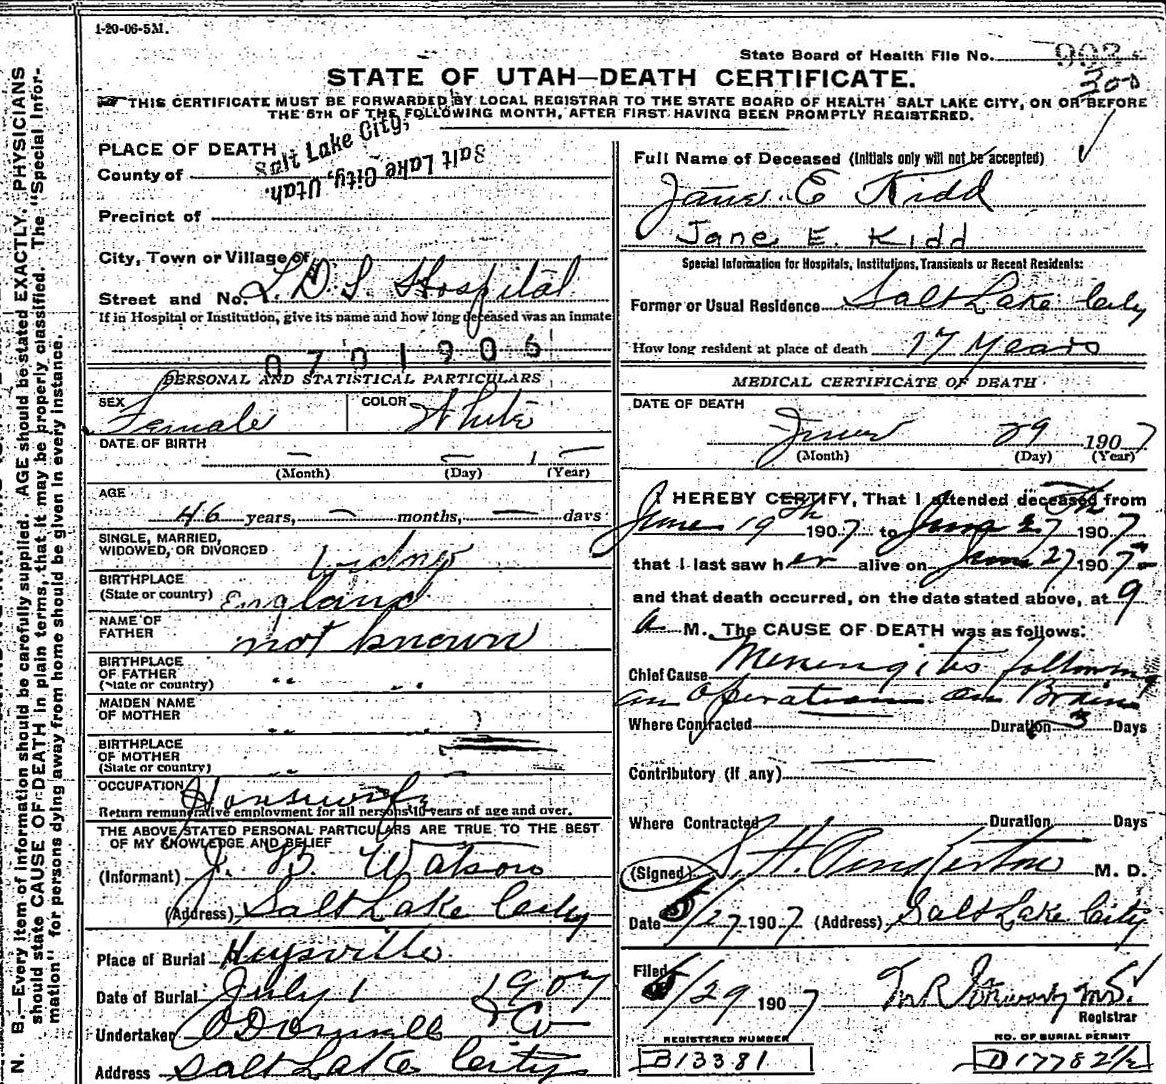 1-20-06-5M.
State Board of Health File No. 902
300
STATE OF UTAH—DEATH CERTIFICATE.
THIS CERTIFICATE MUST BE FORWARDED BY LOCAL REGISTRAR TO THE STATE BOARD OF HEALTH SALT LAKE CITY, ON OR BEFORE
THE 5TH OF THE FOLLOWING MONTH, AFTER FIRST HAVING BEEN PROMPTLY REGISTERED.
PLACE OF DEATH
County of
Salt Lake City,
Salt Lake City, Utah.
Precinct of
City, Town or Village of
Street and No. L.D.S. Hospital
If in Hospital or Institution, give its name and how long deceased was an inmate
0701906
PERSONAL AND STATISTICAL PARTICULARS
SEX Female COLOR White
DATE OF BIRTH
(Month) (Day) 1 (Year)
AGE
46 years, — months, — days
SINGLE, MARRIED,
WIDOWED, OR DIVORCED widow
BIRTHPLACE
(State or country) England
NAME OF
FATHER not known
BIRTHPLACE
OF FATHER
(State or country) " "
MAIDEN NAME
OF MOTHER " "
BIRTHPLACE
OF MOTHER
(State or country) " "
OCCUPATION Housewife
Return remunerative employment for all persons 10 years of age and over.
THE ABOVE STATED PERSONAL PARTICULARS ARE TRUE TO THE BEST
OF MY KNOWLEDGE AND BELIEF
(Informant) J. B. Watson
(Address) Salt Lake City
Place of Burial Kaysville
Date of Burial July 1 1907
Undertaker O'Donnell & Co
Address Salt Lake City
Full Name of Deceased (Initials only will not be accepted)
Jane E Kidd
Jane E. Kidd
Special Information for Hospitals, Institutions, Transients or Recent Residents:
Former or Usual Residence Salt Lake City
How long resident at place of death 17 Years
MEDICAL CERTIFICATE OF DEATH
DATE OF DEATH
June 29 1907
(Month) (Day) (Year)
I HEREBY CERTIFY, That I attended deceased from
June 19th 1907 to June 27th 1907
that I last saw her alive on June 27 1907
and that death occurred, on the date stated above, at 9
a M. The CAUSE OF DEATH was as follows:
Chief Cause Meningitis following
an operation on Brain
Where Contracted Duration 3 Days
Contributory (if any)
Where Contracted Duration Days
(Signed) S. H. Pinkerton M. D.
Date /27 1907 (Address) Salt Lake City
Filed /29 1907
M.D.
Registrar
REGISTERED NUMBER
B13381
NO. OF BURIAL PERMIT
D17782½
N. B.—Every item of information should be carefully supplied. AGE should be stated EXACTLY. PHYSICIANS
should state CAUSE OF DEATH in plain terms, that it may be properly classified. The "Special Infor-
mation" for persons dying away from home should be given in every instance.